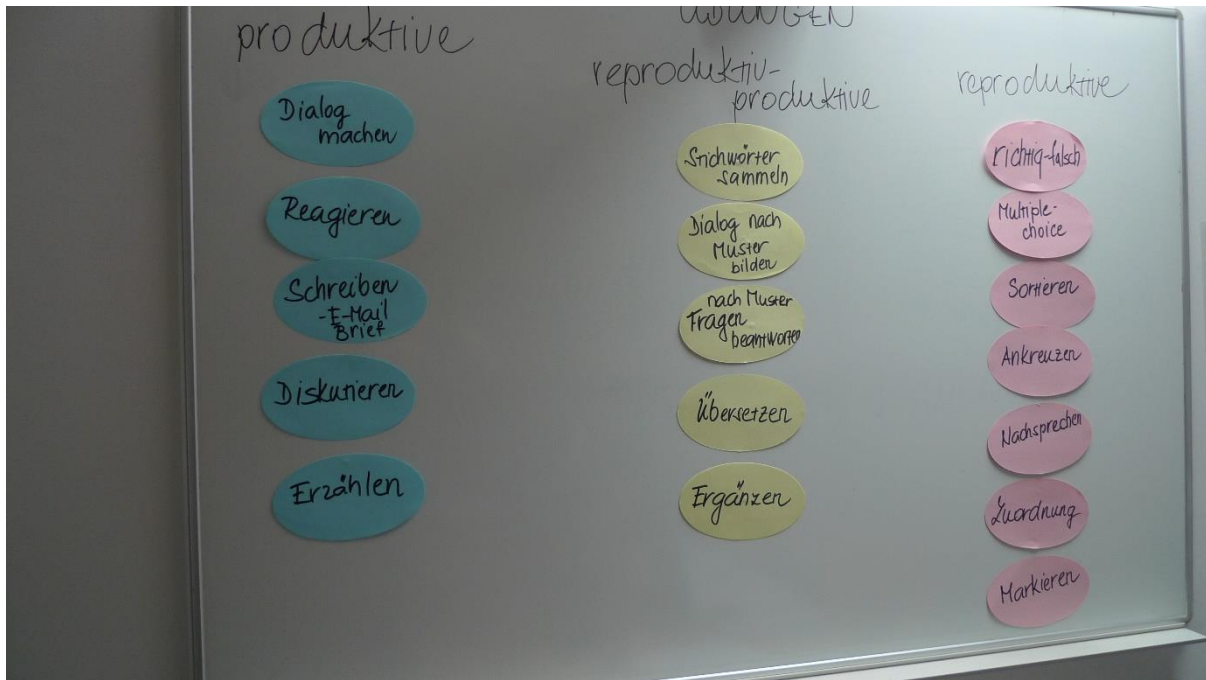 produktive
Dialog
machen
Reagieren
Schreiben
-E-Mail
Brief
Diskutieren
Erzählen
reproduktiv-
produktive
Stichwörter
sammeln
Dialog nach
Muster
bilden
nach Muster
Fragen
beantworten
Übersetzen
Ergänzen
reproduktive
richtig-falsch
Multiple-
choice
Sortieren
Ankreuzen
Nachsprechen
Zuordnung
Markieren